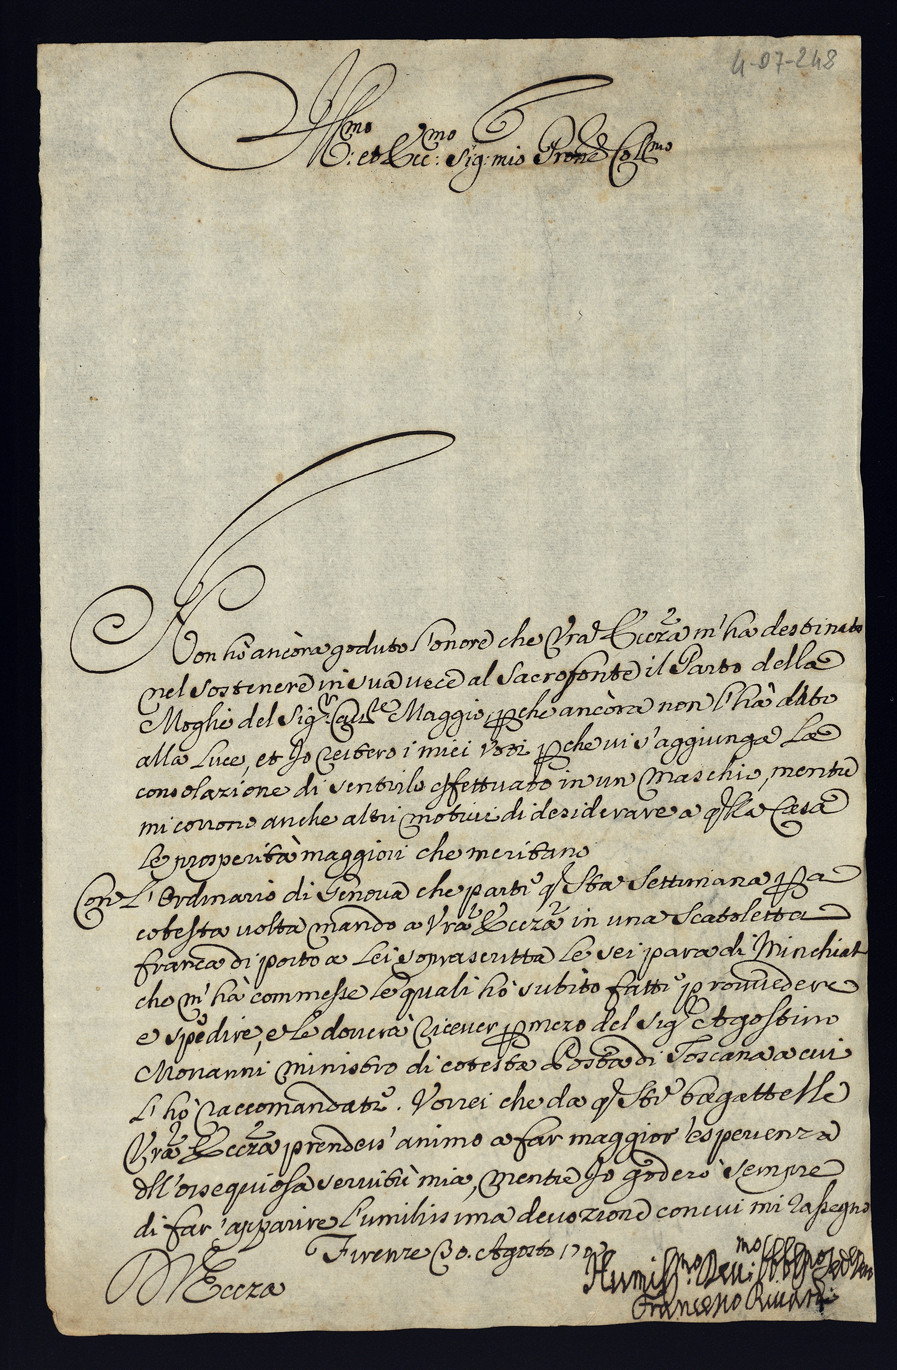 4-07-248
Ill:mo et Ecc:mo Sig: mio Prone Coll:mo
Non hò ancòra goduto l'onore che Vra Eccza m'ha destinato
nel sostenere in sua vece al Sacro fonte il Parto della
Moglie del Sigr Caule Maggio, pche ancòra non l'hà dato
alla Luce, et Io reitero i miei Voti pche vi s'aggiunga La
consolazione di sentirlo effettuato in un Maschio, mentre
mi corrono anche altri motivi di desiderare a qlla Casa
Le prosperità maggiori che meritano
Con L'Ordinario di Genova che parti qsta Settimana p a
cotesta volta mando a Vra Eccza in una Scatoletta
franca di porto a Lei soprascritta Le sei para di Minchiate
che m'hà commesse Le quali hò subìto fatte provvedere
e spedire, e Le doverà ricever p mezo del Sigr Agostino
Monanni Ministro di cotesta Posta di Toscana a cui
L'hò raccomandate. Vorrei che da qste bagattelle
Vra Eccza prendess'animo a far maggior'esperienza
dll'ossequiosa servitù mia, mentre Io goderò sempre
di far'apparire L'umilissima devozione con cui mi rassegno
D V Eccza Firenze 30. Agosto
Humilmo Deumo Obbl
Francesco Riccardi